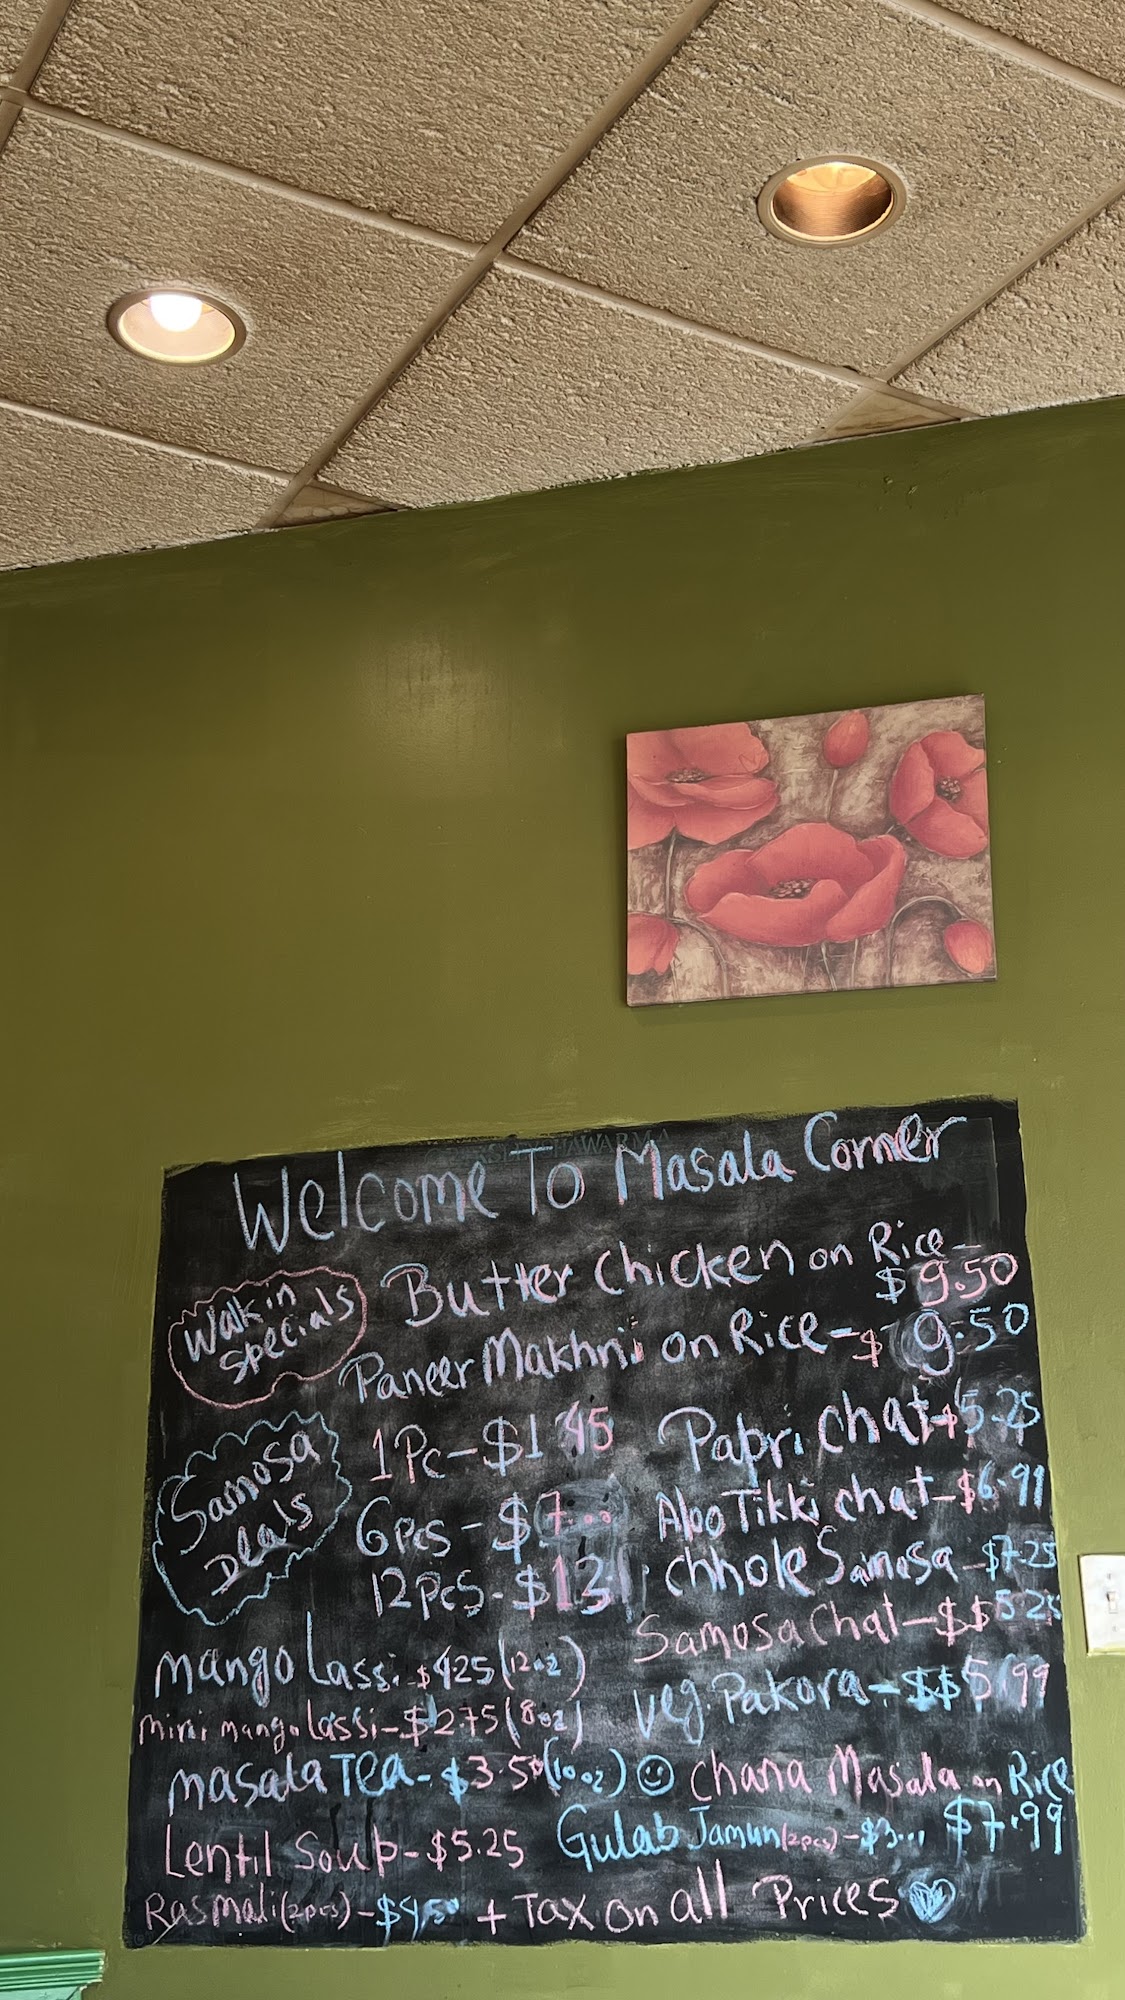 Welcome To Masala Corner
Walk in
Specials
Butter Chicken on Rice -
$ 9.50
Paneer Makhni on Rice - $ 9.50
Samosa
Deals
1 Pc - $1.45
6 pcs - $7.00
12 pcs - $13
Papri Chat - $5.25
Aloo Tikki chat - $6.99
Chhole Samosa - $7.25
Samosa Chat - $$5.25
Veg. Pakora - $$5.99
Mango Lassi - $425 (12oz)
Mini mango lassi - $275 (8oz)
masala Tea - $3.50 (10oz)
Chana Masala on Rice
$7.99
Lentil Soup - $5.25
Gulab Jamun (2pcs) - $3...
Rasmali (2pcs) - $4.50 + Tax on all Prices